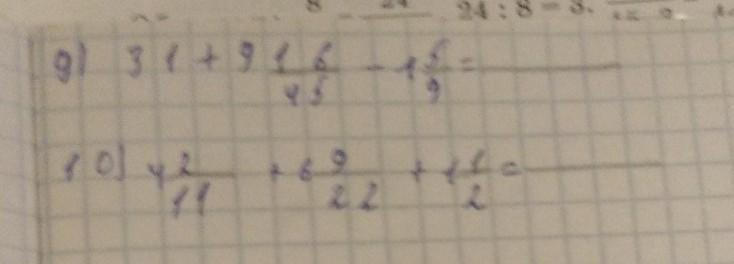 24 : 8 = 3.
9) 31 + 9 16/45 - 1 5/9 =
10) 4 2/11 + 6 9/22 + 1 1/2 =